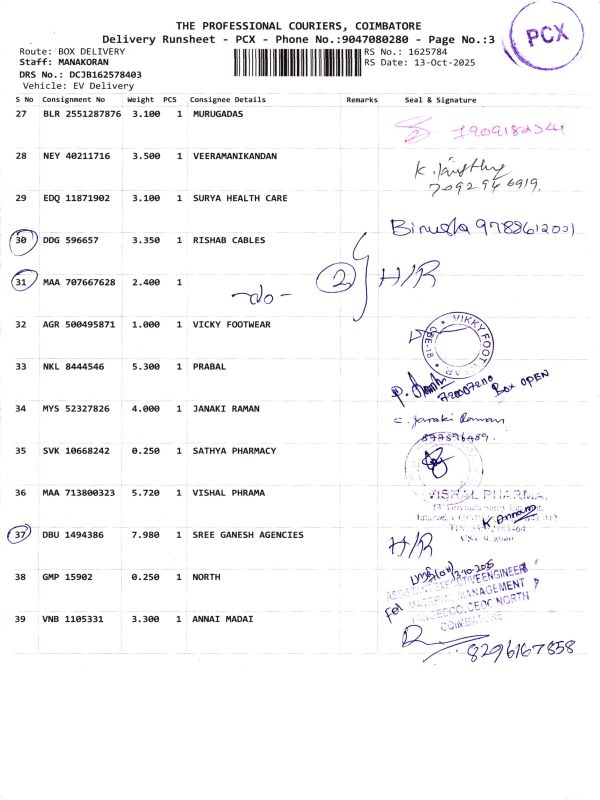 THE PROFESSIONAL COURIERS, COIMBATORE
Delivery Runsheet - PCX - Phone No.:9047080280 - Page No.:3
PCX
Route: BOX DELIVERY RS No.: 1625784
Staff: MANAKORAN RS Date: 13-Oct-2025
DRS No.: DCJB162578403
Vehicle: EV Delivery
S No Consignment No Weight PCS Consignee Details Remarks Seal & Signature
27 BLR 2551287876 3.100 1 MURUGADAS
28 NEY 40211716 3.500 1 VEERAMANIKANDAN
7092946919
29 EDQ 11871902 3.100 1 SURYA HEALTH CARE
9788612001
30 DDG 596657 3.350 1 RISHAB CABLES
31 MAA 707667628 2.400 1 -do- 2 H/R
32 AGR 500495871 1.000 1 VICKY FOOTWEAR
VIKKY FOOT WEAR CBE-18
33 NKL 8444546 5.300 1 PRABAL
Box OPEN
34 MYS 52327826 4.000 1 JANAKI RAMAN
C. Janaki Raman
877896489
35 SVK 10668242 0.250 1 SATHYA PHARMACY
36 MAA 713800323 5.720 1 VISHAL PHRAMA
VISHAL PHARMA,
37 DBU 1494386 7.980 1 SREE GANESH AGENCIES
H/R
38 GMP 15902 0.250 1 NORTH
ASSISTANT EXECUTIVE ENGINEER
For MATERIAL MANAGEMENT
TANGEDCO, CEDC NORTH
COIMBATORE
39 VNB 1105331 3.300 1 ANNAI MADAI
8296167858